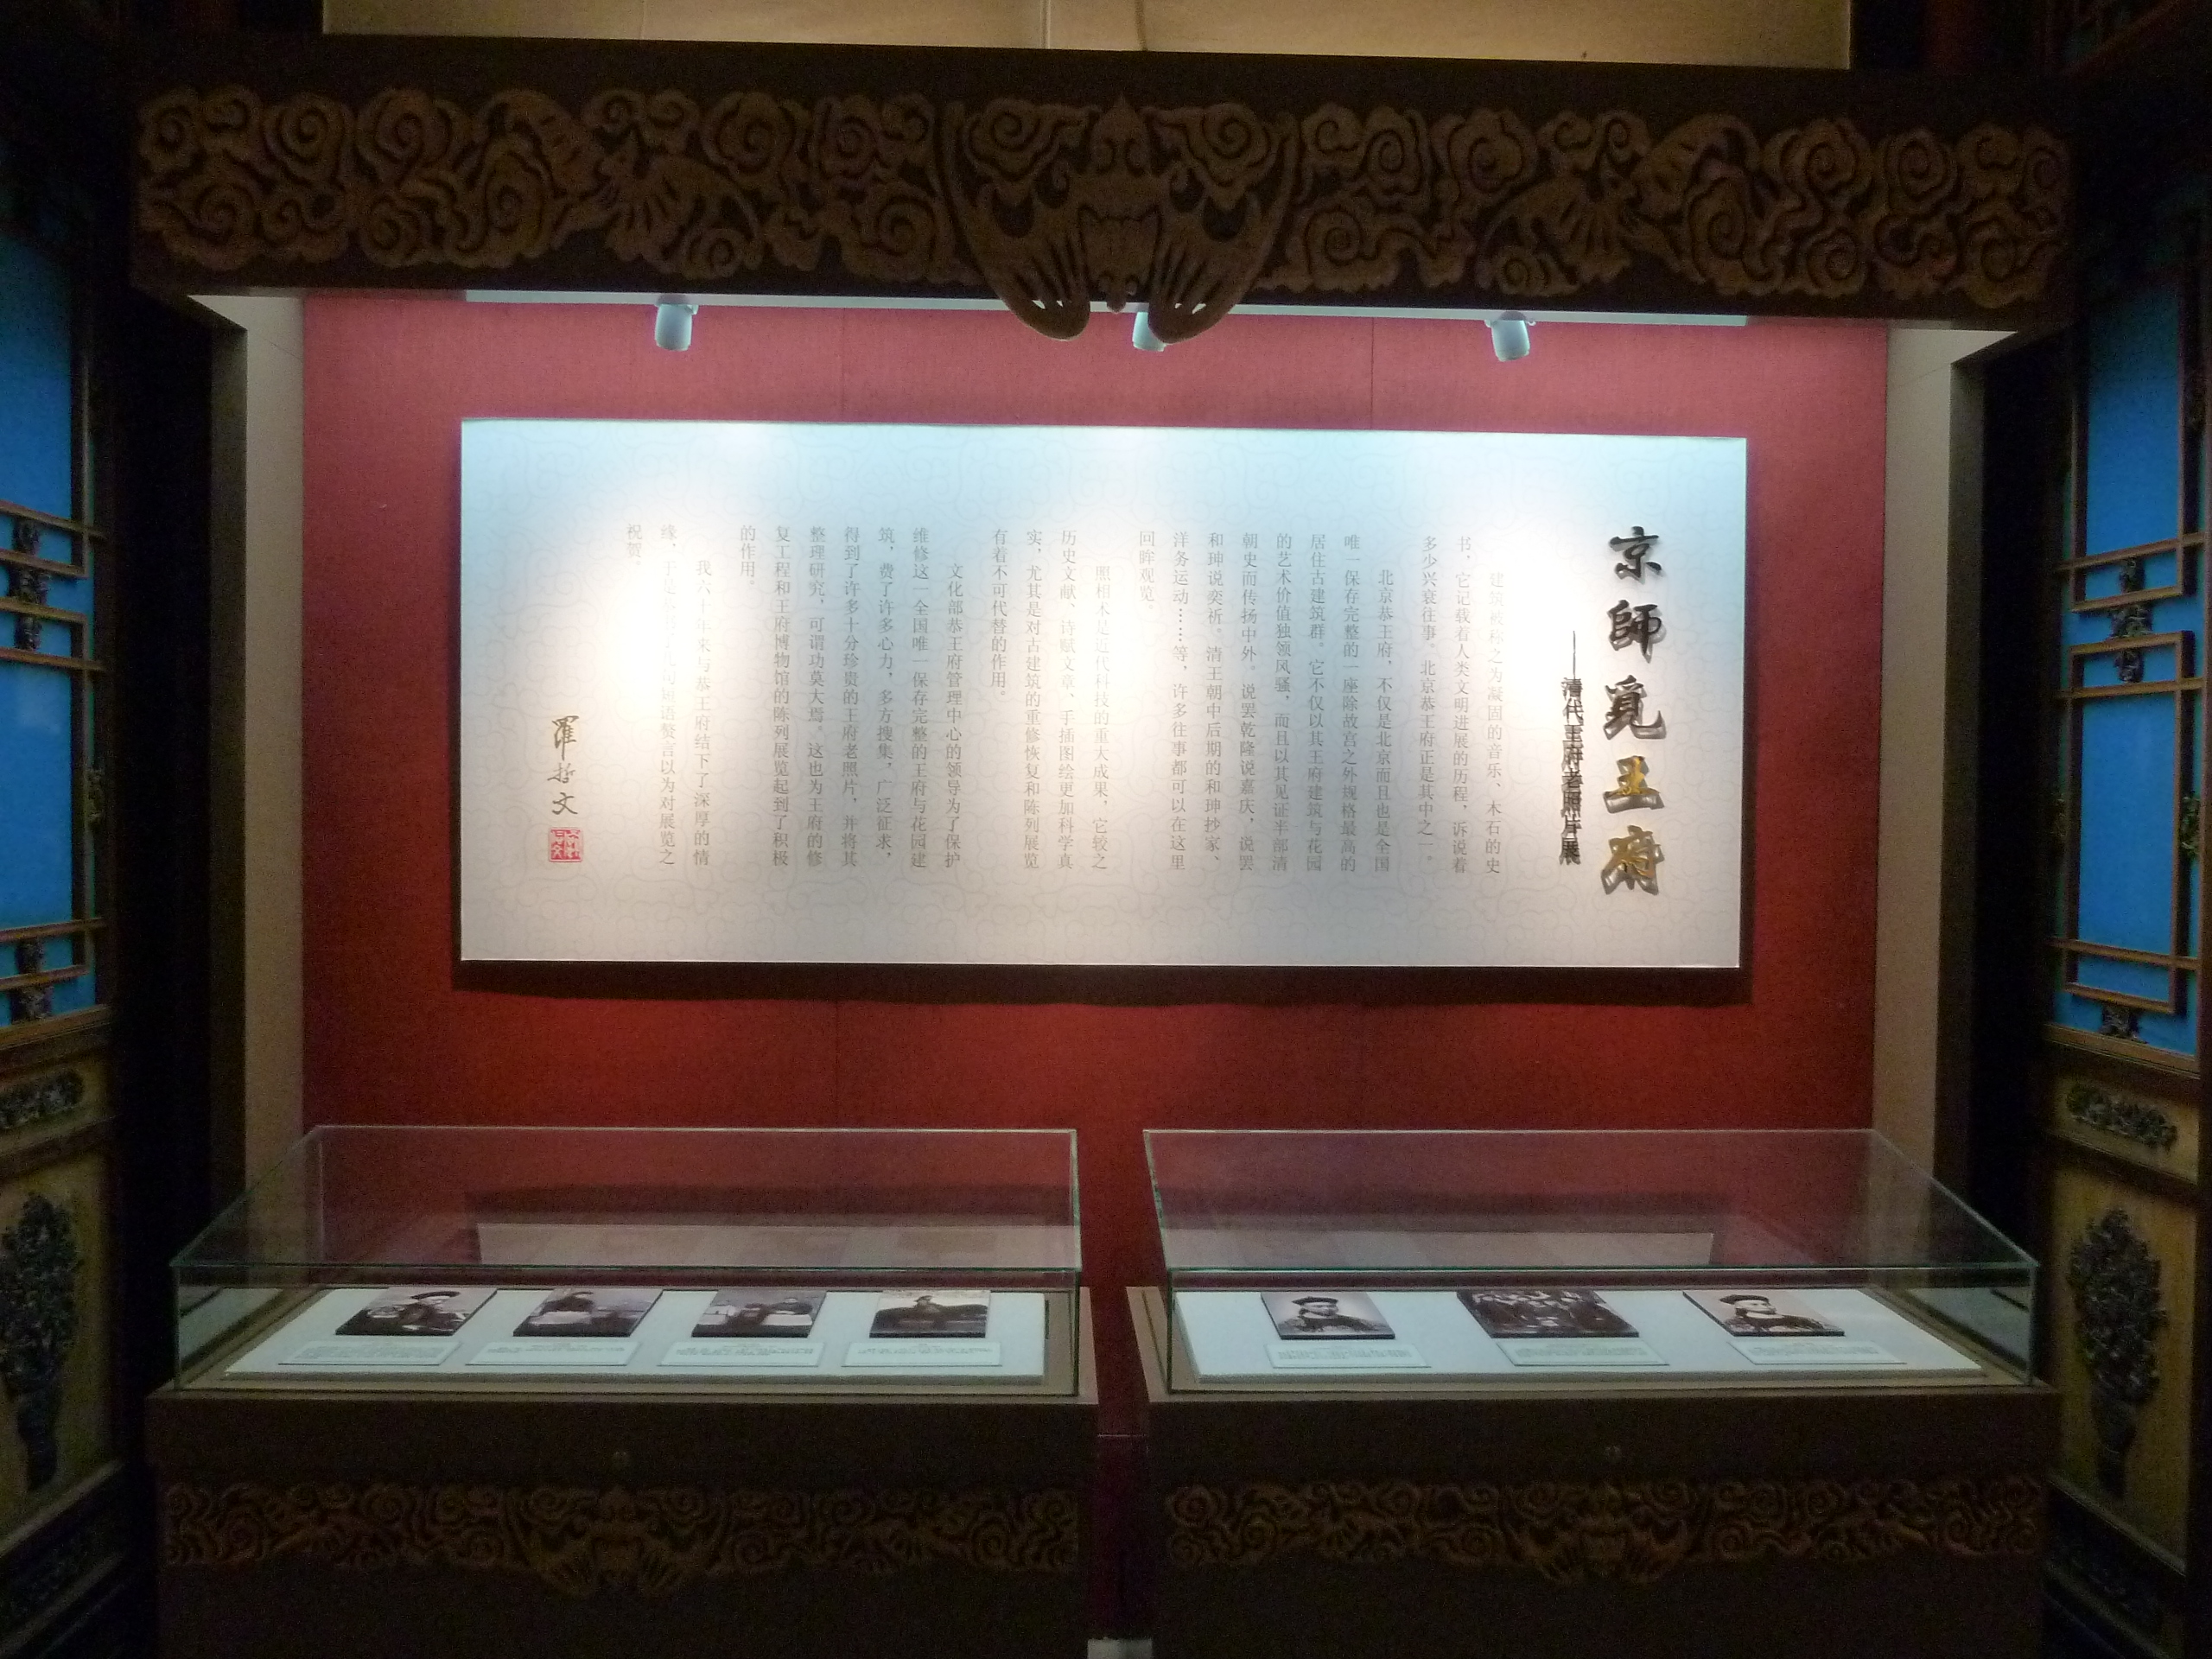 京師覓王府
——清代王府老照片展
建筑被称之为凝固的音乐、木石的史
书，它记载着人类文明进展的历程，诉说着
多少兴衰往事。北京恭王府正是其中之一。
北京恭王府，不仅是北京而且也是全国
唯一保存完整的一座除故宫之外规格最高的
居住古建筑群。它不仅以其王府建筑与花园
的艺术价值独领风骚，而且以其见证半部清
朝史而传扬中外。说罢乾隆说嘉庆，说罢
和珅说奕祈。清王朝中后期的和珅抄家、
洋务运动……等，许多往事都可以在这里
回眸观览。
照相术是近代科技的重大成果，它较之
历史文献、诗赋文章、手描图绘更加科学真
实，尤其是对古建筑的重修恢复和陈列展览
有着不可代替的作用。
文化部恭王府管理中心的领导为了保护
维修这一全国唯一保存完整的王府与花园建
筑，费了许多心力，多方搜集，广泛征求，
得到了许多十分珍贵的王府老照片，并将其
整理研究，可谓功莫大焉。这也为王府的修
复工程和王府博物馆的陈列展览起到了积极
的作用。
我六十年来与恭王府结下了深厚的情
缘，于是 短语赘言以为对展览之
祝贺。
羅哲文